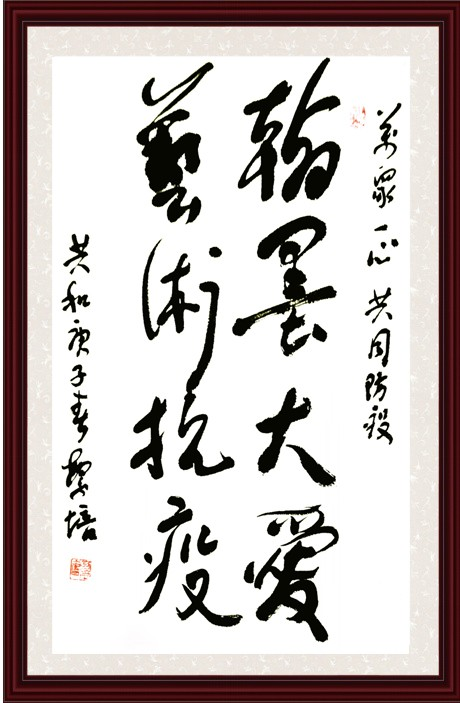 萬眾一心 共同防疫
翰墨大愛
藝術抗疫
共和庚子春 培